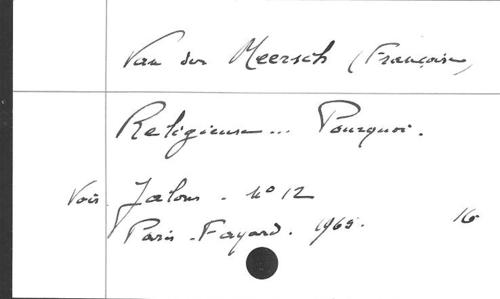 Van der Meersch (Françoise)
Religieuse... Pourquoi.
Voir Jalons - N° 12
Paris - Fayard. 1965. 16